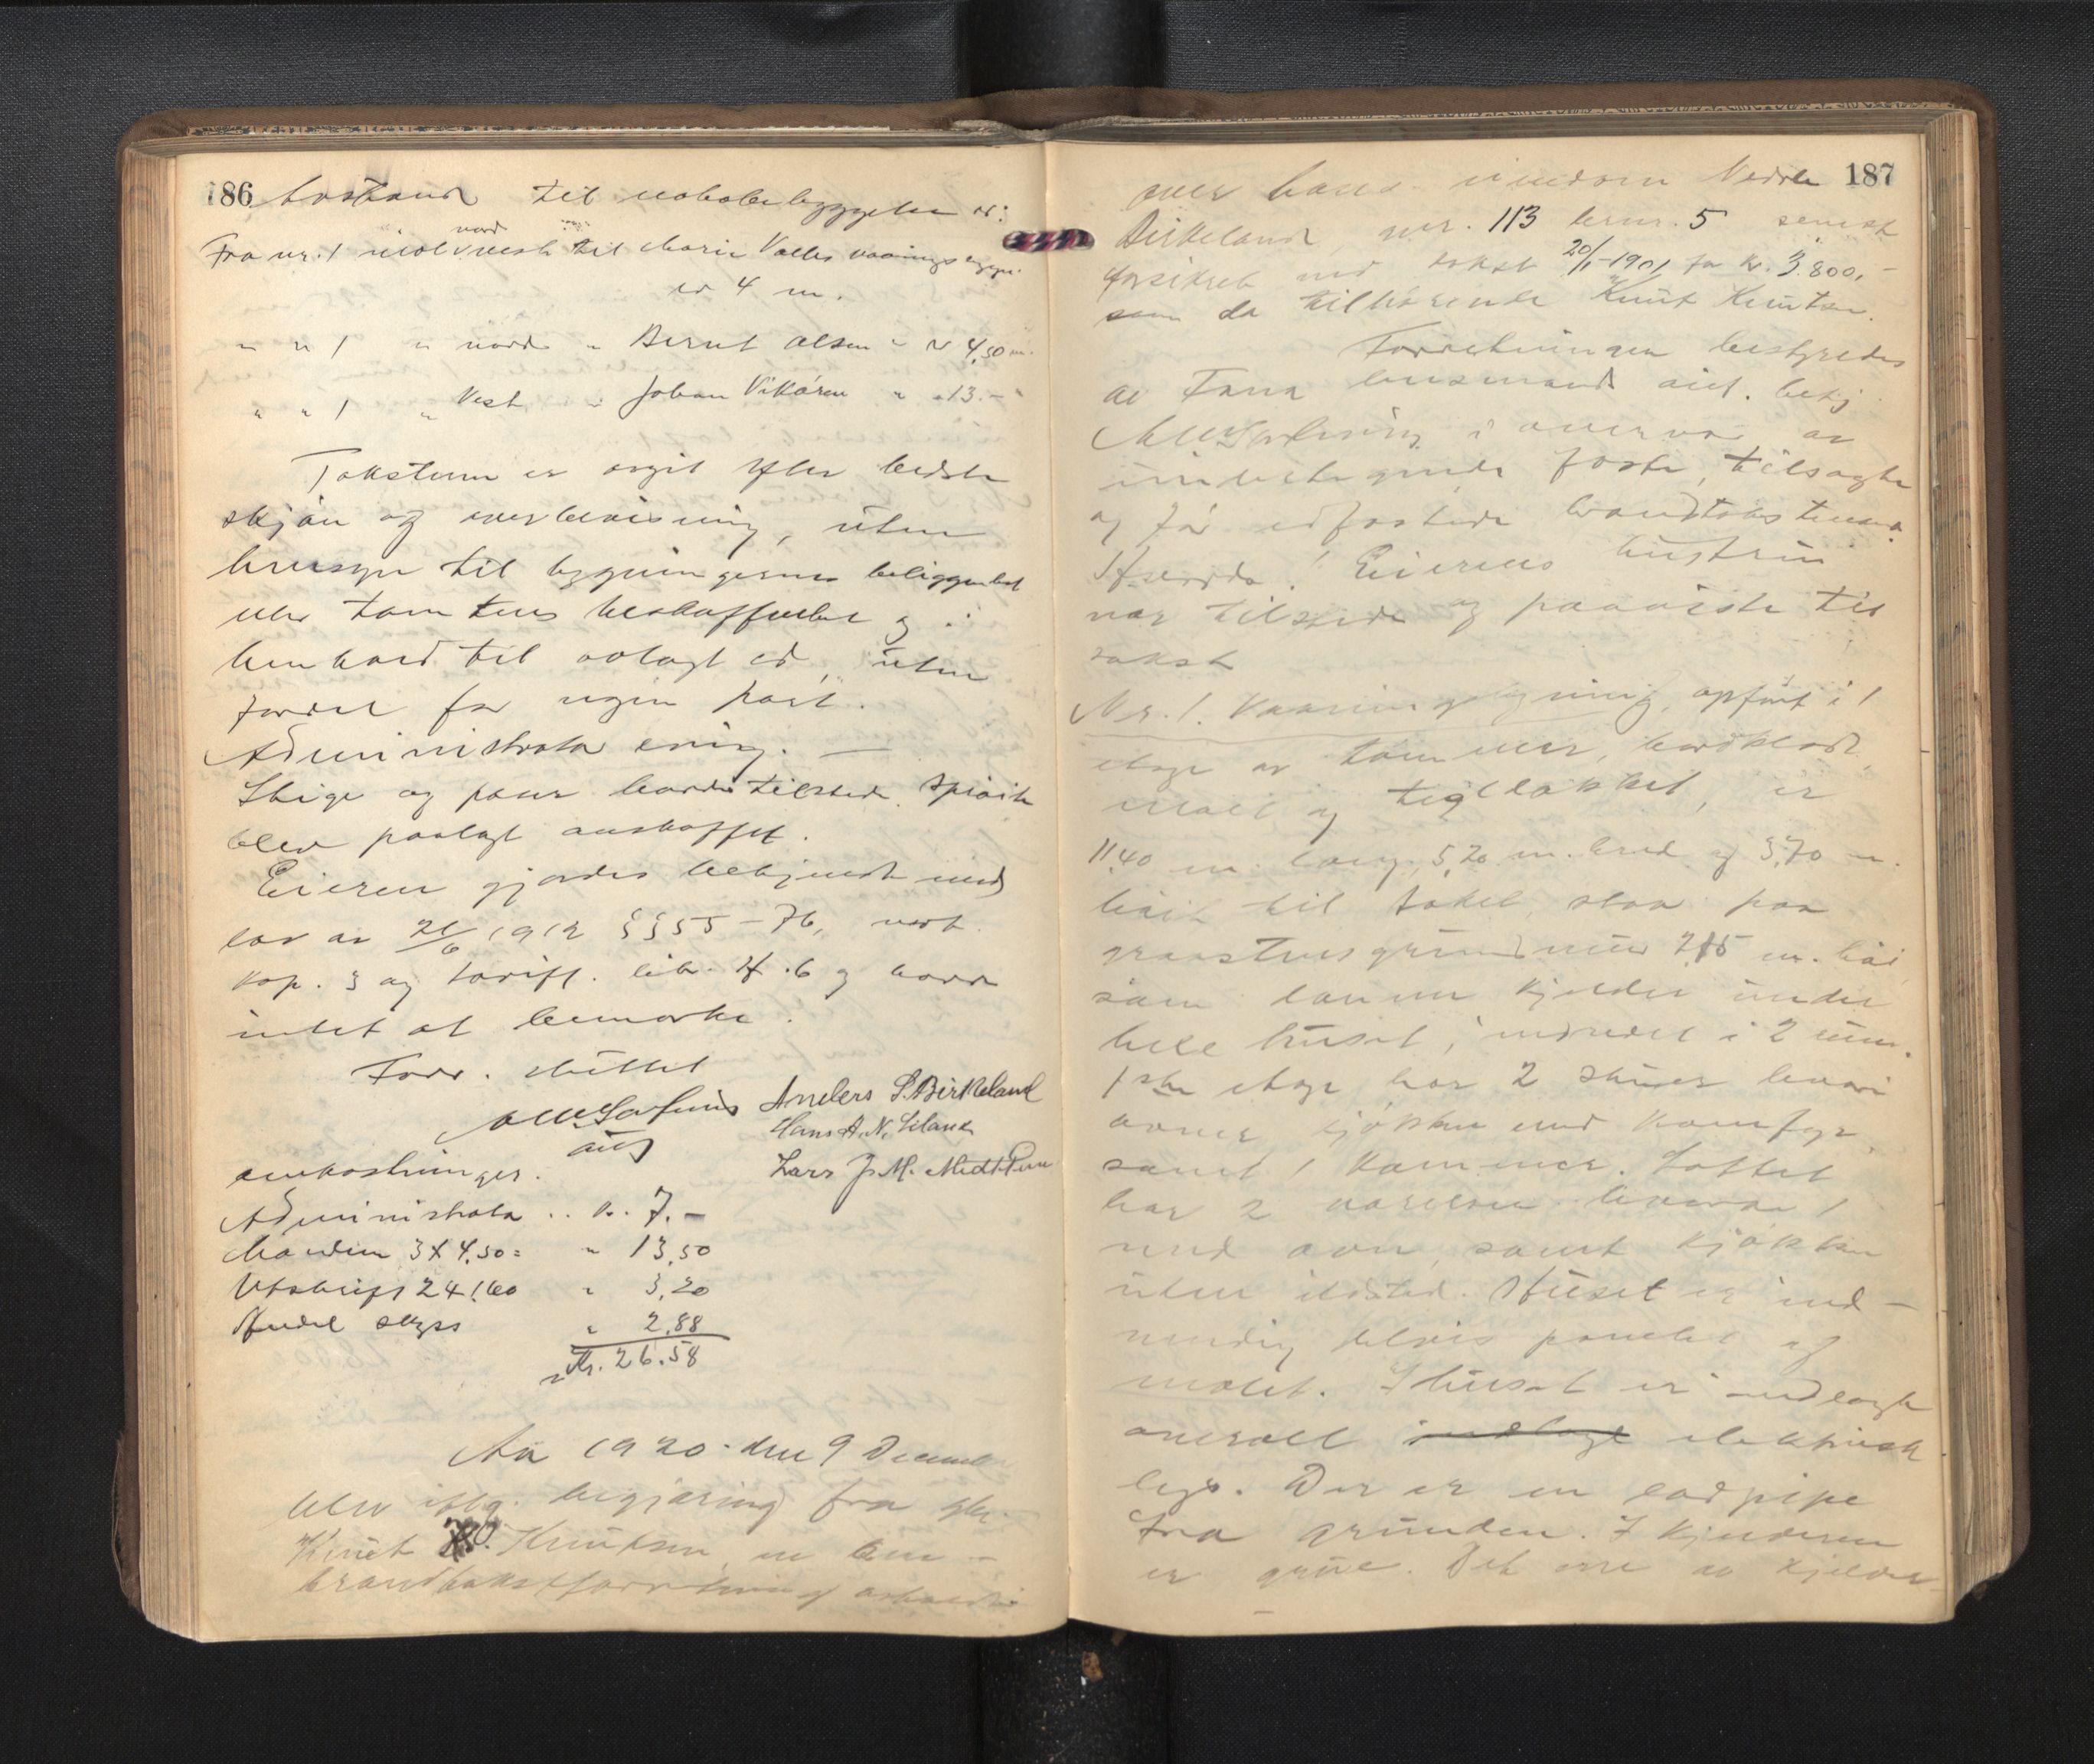 186 Avstand til nabobebyggelse er:
Fra nr. 1 mot nordvest til Marie Valles vaaningsbygn.
er 4 m.
" " 1 " nord " Bernt Olsen " " 4,50 m.
" " 1 " Vest " Johan Vikören " " 13.–
Taksterne er avgit efter bedste
skjön og overbevisning, uten
hensyn til bygningernes beliggenhet
eller tomtens beskaffenhet og i
henhold til avlagt ed, uten
fordel for nogen part.
Administrator enig. —
Stige og pöser havdes tilstede. Spröite
blev paalagt anskaffet.
Eieren gjordes bekjendt med
lov av 21/6 1912 §§ 55 – 76, vedt.
kap. 3 og tariff. lit. H. 6 og havde
intet at bemerke.
Forr. sluttet
Anders S. Birkeland
Hans A. N. Liland
aut
Lars J. M. Midttun
Omkostninger.
Administrator .. kr. 7.–
Mændene 3 x 4,50 = " 13,50
Utskrift 2 x 1,60 " 3,20
Andel skyss " 2,88
Kr. 26.58
Aar 1920 den 9 December
blev iflg. begjæring fra gbr.
Knut O. Knutsen en om-
brandtakstforretning avholdt
187
over hans eiendom Nedre
Birkeland, gnr. 113 brnr. 5 senest
forsikret ved takst 20/1-1901 for kr. 3.800,–
som da tilhörende Knut Knutsen.
Forretningen bestyredes
av Fana lensmand aut. betj.
i overvær av
undertegnede faste, tilsagte
og för edfæstede brandtakstmænd
Eierens hustru
var tilstede og paaviste til
takst
Nr. 1. Vaaningsbygning, opfört i 1
etage av tömmer, bordklædt,
malt og teglstakket, er
11,40 m. lang, 5,20 m. bred og 3,70 m.
höit til taket, staar paa
graastensgrundmur 2,15 m. höi,
som danner kjelder under
hele huset, indredet i 2 rum.
1ste etage har 2 stuer hvori
ovner kjökken med komfyr,
samt 1 kammer. Loftet
har 2 værelser hvorav 1
med ovn, samt kjökken
uten ildsted. Huset er ind-
vendig delvis panelet og
malet. I huset er indlagt
overalt indlagt elektrisk
lys. Der er en lodpipe
fra grunden. I kjelderen
er grue. Det ene av kjelder-